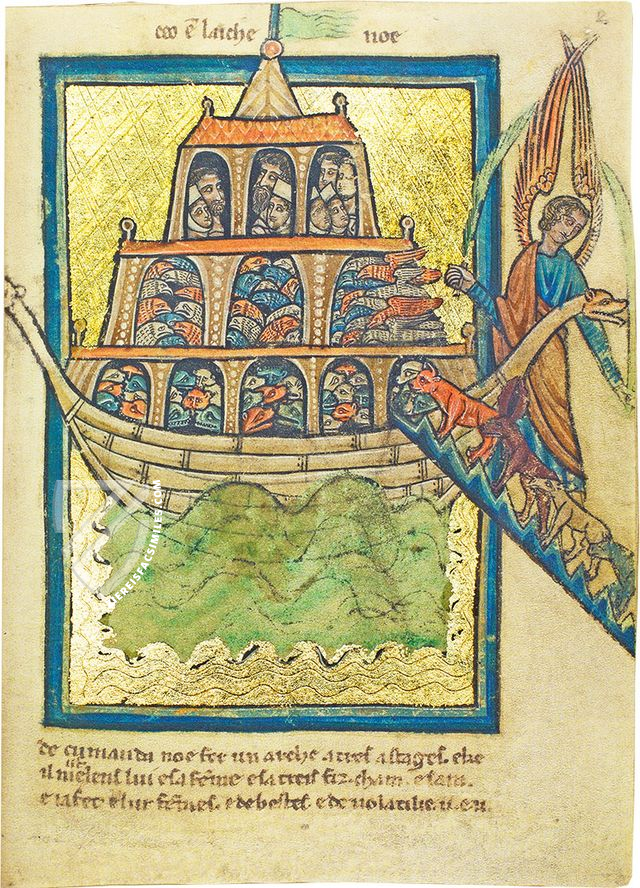 ceo est larche noe
de cumanda noe fer un arche a treis astages. e ke
il meist ens lui e sa feme e sa treis fiz. cham. e sem.
e iafet e lur femes. e de bestes. e de volatilie. u. en.
VIEREISFACSIMILES.COM